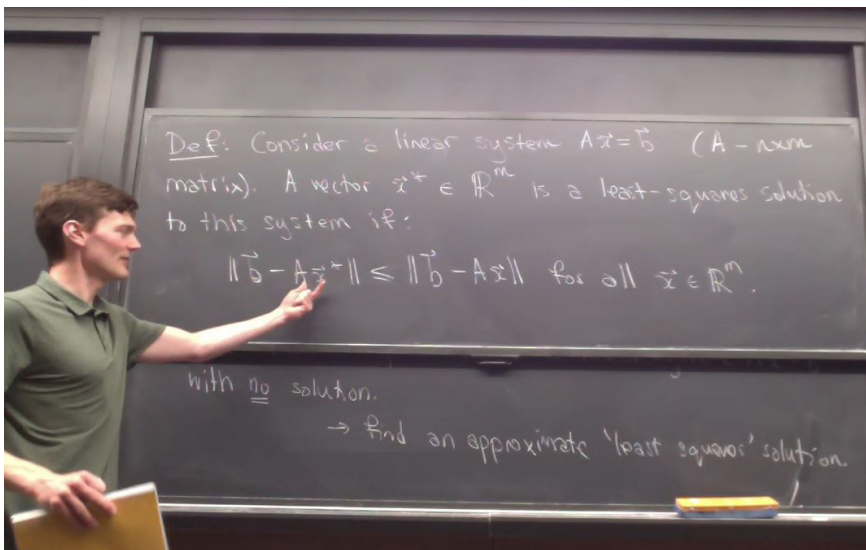 Def: Consider a linear system Ax⃗ = b⃗ (A - n×m
matrix). A vector x⃗* ∈ ℝᵐ is a least-squares solution
to this system if:
‖b⃗ - Ax⃗*‖ ≤ ‖b⃗ - Ax⃗‖ for all x⃗ ∈ ℝᵐ.
with no solution.
→ find an approximate 'least squares' solution.